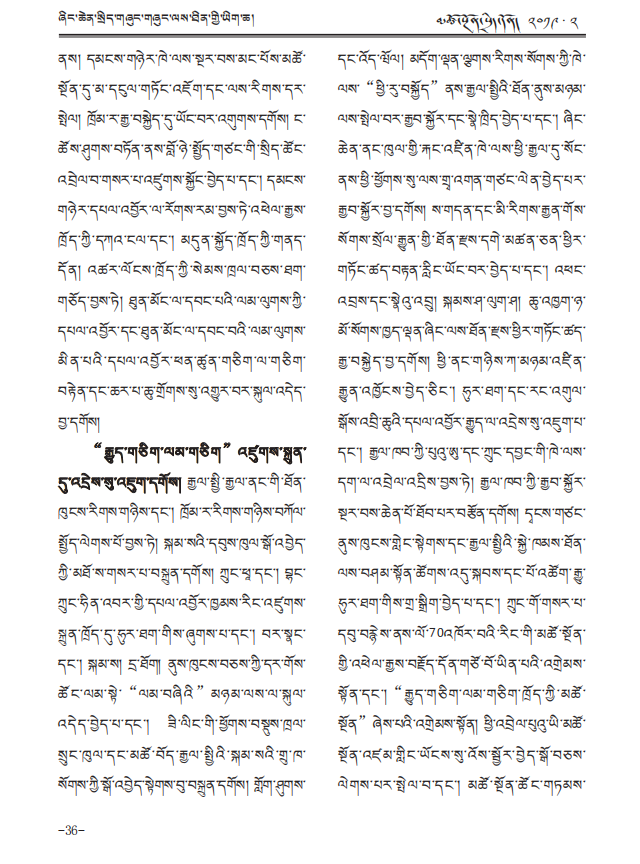 ཞིང་ཆེན་སྲིད་གཞུང་གཞུང་ལས་ཐེན་གྱི་ཡིག་ཆ།
མཚོ་སྔོན་སྲིད་གཞུང་། ༢༠༡༩ · ༢
ནས། དམངས་གཉེར་ཁེ་ལས་སྔར་བས་མང་པོས་མཚོ་
སྔོན་དུ་མ་དངུལ་གཏོང་འཇོག་དང་ལས་རིགས་དར་
སྤེལ། ཁྲོམ་ར་རྒྱ་བསྐྱེད་དུ་ཡོང་བར་འགུགས་དགོས། ང་
ཚོས་ཤུགས་བཏོན་ནས་བློ་ཉེ་སྤྱོད་གཙང་གི་སྲིད་ཚོང་
འབྲེལ་བ་གསར་པ་འཛུགས་སྐྱོང་བྱེད་པ་དང་། དམངས་
གཉེར་དཔལ་འབྱོར་ལ་རོགས་རམ་བྱས་ཏེ་འཕེལ་རྒྱས་
ཁྲོད་ཀྱི་དཀའ་ངལ་དང་། མདུན་སྐྱོད་ཁྲོད་ཀྱི་གནད་
དོན། འཚར་ལོངས་ཁྲོད་ཀྱི་སེམས་ཁྲལ་བཅས་ཐག་
གཅོད་བྱས་ཏེ། ཐུན་མོང་ལ་དབང་པའི་ལམ་ལུགས་ཀྱི་
དཔལ་འབྱོར་དང་ཐུན་མོང་ལ་དབང་བའི་ལམ་ལུགས་
མིན་པའི་དཔལ་འབྱོར་ཕན་ཚུན་གཅིག་ལ་གཅིག་
བརྟེན་དང་ཆར་པ་ཆུ་གྲོགས་སུ་འགྱུར་བར་སྐུལ་འདེད་
བྱ་དགོས།
“རྒྱུད་གཅིག་ལམ་གཅིག”འཛུགས་སྐྲུན་
དུ་འདྲེས་སུ་འཇུག་དགོས། རྒྱལ་སྤྱི་རྒྱལ་ནང་གི་ཐོན་
ཁུངས་རིགས་གཉིས་དང་། ཁྲོམ་ར་རིགས་གཉིས་བཀོལ་
སྤྱོད་ལེགས་པོ་བྱས་ཏེ། སྐམ་སའི་དབུས་ཁུལ་སྒོ་འབྱེད་
ཀྱི་མཐོ་ས་གསར་པ་བསྐྲུན་དགོས། ཀྲུང་ཕྲ་དང་། བྷང་
ཀྲུང་ཧིན་འབར་གྱི་དཔལ་འབྱོར་ཁྱམས་རིང་འཛུགས་
སྐྲུན་ཁྲོད་དུ་ཧུར་ཐག་གིས་ཞུགས་པ་དང་། བར་སྣང་
དང་། སྐམ་ས། དྲ་ཐོག ནུས་ཁུངས་བཅས་ཀྱི་དར་གོས་
ཚོང་ལམ་སྟེ་“ལམ་བཞིའི”མཉམ་ལས་ལ་སྐུལ་
འདེད་བྱེད་པ་དང་། ཟི་ལིང་གི་ཕྱོགས་བསྡུས་ཁྲལ་
སྲུང་ཁུལ་དང་མཚོ་བོད་རྒྱལ་སྤྱིའི་སྐམ་སའི་གྲུ་ཁ་
སོགས་ཀྱི་སྒོ་འབྱེད་སྟེགས་བུ་བསྐྲུན་དགོས། གློག་ཤུགས་
དང་འོད་ཝོལ། མདོག་ལྡན་ལྕགས་རིགས་སོགས་ཀྱི་ཁེ་
ལས་“ཕྱི་རུ་བསྐྱོད”ནས་རྒྱལ་སྤྱིའི་ཐོན་ནུས་མཉམ་
ལས་སྤེལ་བར་རྒྱབ་སྐྱོར་དང་སྣེ་ཁྲིད་བྱེད་པ་དང་། ཞིང་
ཆེན་ནང་ཁུལ་གྱི་རྐང་འཛིན་ཁེ་ལས་ཕྱི་རྒྱལ་དུ་སོང་
ནས་ཕྱི་ཕྱོགས་སུ་ལས་གྲྭ་འགན་གཙང་ལེན་བྱེད་པར་
རྒྱབ་སྐྱོར་བྱ་དགོས། ས་གདན་དང་མི་རིགས་རྒྱན་གོས་
སོགས་སྲོལ་རྒྱུན་གྱི་ཐོན་རྫས་དགེ་མཚན་ཅན་ཕྱིར་
གཏོང་ཚད་བརྟན་རླིང་ཡོང་བར་བྱེད་པ་དང་། འཕང་
འབྲས་དང་སྣེའུ་འབྲུ། སྐམས་ཤ་ལུག་ཤ། ཆུ་འཁྱག་ཉ་
མོ་སོགས་ཁྱད་ལྡན་ཞིང་ལས་ཐོན་རྫས་ཕྱིར་གཏོང་ཚད་
རྒྱ་བསྐྱེད་བྱ་དགོས། ཕྱི་ནང་གཉིས་ཀ་མཉམ་འཛིན་
རྒྱུན་འཁྱོངས་བྱེད་ཅིང་། ཧུར་ཐག་དང་རང་འགུལ་
སྒོས་འབྲི་ཆུའི་དཔལ་འབྱོར་རྒྱུད་ལ་འདྲེས་སུ་འཇུག་པ་
དང་། རྒྱལ་ཁབ་ཀྱི་པུའུ་ཨུ་དང་ཀྲུང་དབྱང་གི་ཁེ་ལས་
དག་ལ་འབྲེལ་འདྲིས་བྱས་ཏེ། རྒྱལ་ཁབ་ཀྱི་རྒྱབ་སྐྱོར་
སྔར་བས་ཆེན་པོ་ཐོབ་པར་བརྩོན་དགོས། དྭངས་གཙང་
ནུས་ཁུངས་གླེང་སྟེགས་དང་རྒྱལ་སྤྱིའི་སྐྱེ་ཁམས་ཐོན་
ལས་བཤམ་སྟོན་ཚོགས་འདུ་སྐབས་དང་པོ་འཚོག་རྒྱུ་
ཧུར་ཐག་གིས་གྲ་སྒྲིག་བྱེད་པ་དང་། ཀྲུང་གོ་གསར་པ་
དབུ་བརྙེས་ནས་ལོ་70འཁོར་བའི་རིང་གི་མཚོ་སྔོན་
གྱི་འཕེལ་རྒྱས་བརྗོད་དོན་གཙོ་བོ་ཡིན་པའི་འགྲེམས་
སྟོན་དང་།“རྒྱུད་གཅིག་ལམ་གཅིག་ཁྲོད་ཀྱི་མཚོ་
སྔོན”ཞེས་པའི་འགྲེམས་སྟོན། ཕྱི་འབྲེལ་པུའུ་ཡི་མཚོ་
སྔོན་འཛམ་གླིང་ཡོངས་སུ་འོས་སྦྱོར་བྱེད་སྒོ་བཅས་
ལེགས་པར་སྤེལ་བ་དང་། མཚོ་སྔོན་ཚོང་གཏམས་
-36-